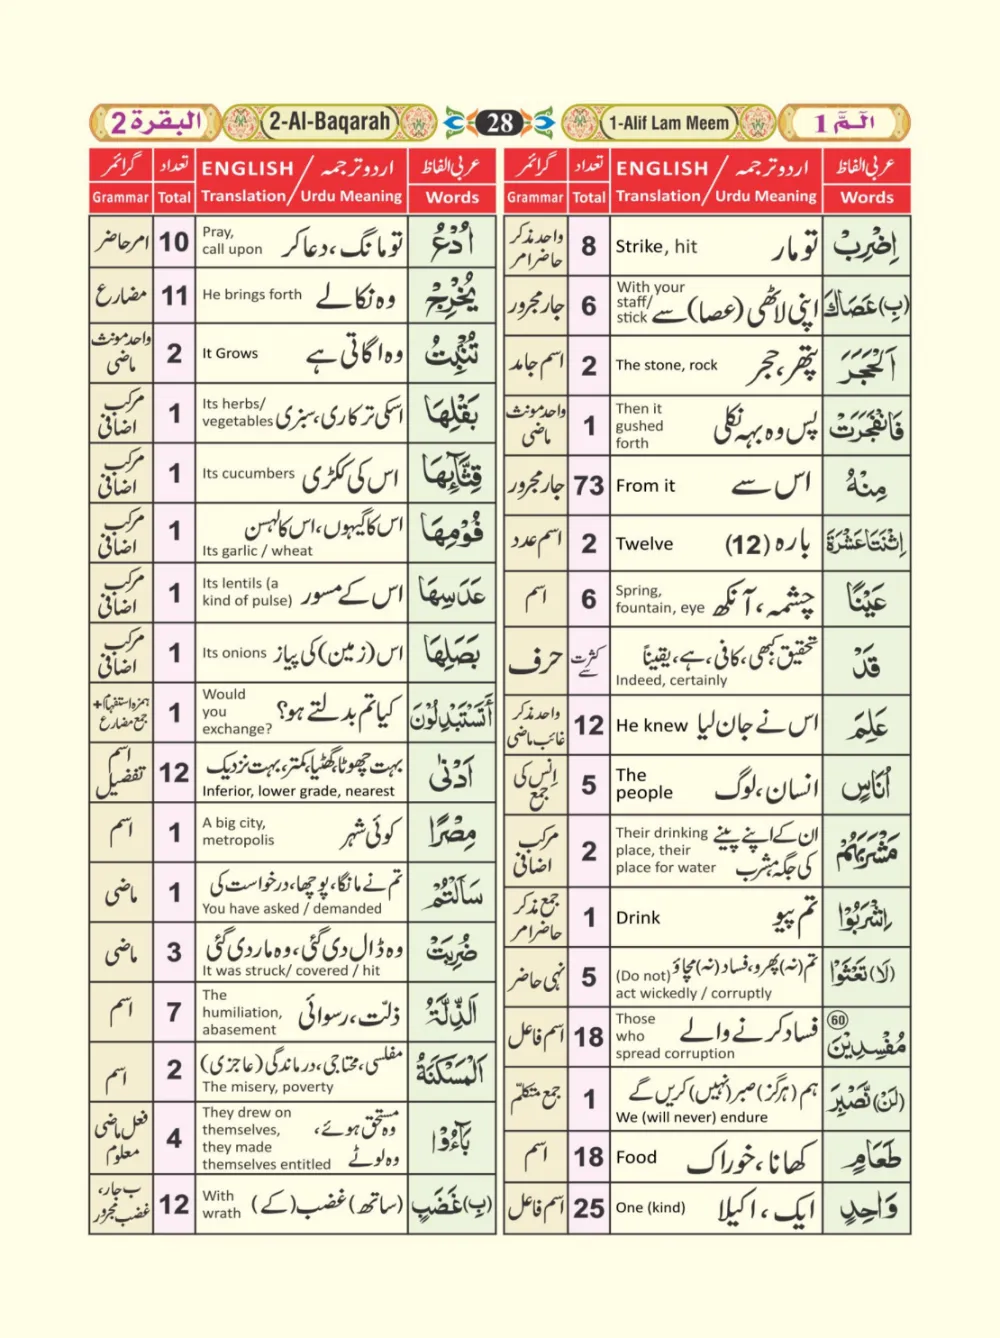 الٓمّٓ 1
1-Alif Lam Meem
28
2-Al-Baqarah
البقرة 2
عربی الفاظ
اردو ترجمہ / ENGLISH
تعداد
گرائمر
Words
Translation/ Urdu Meaning
Total
Grammar
اِضْرِبْ
تو مار
Strike, hit
8
واحد مذکر
حاضر امر
(بِ) عَصَاكَ
اپنی لاٹھی (عصا) سے
With your
staff/
stick
6
جار مجرور
اَلْحَجَرَ
پتھر، حجر
The stone, rock
2
اسم جامد
فَانْفَجَرَتْ
پس وہ بہہ نکلی
Then it
gushed
forth
1
واحد مونث
ماضی
مِنْهُ
اس سے
From it
73
جار مجرور
اثْنَتَا عَشْرَةَ
بارہ (12)
Twelve
2
اسم عدد
عَيْنًا
چشمہ، آنکھ
Spring,
fountain, eye
6
اسم
قَدْ
تحقیق، کبھی، کافی، ہے، یقیناً
Indeed, certainly
کثرت
سے
حرف
عَلِمَ
اس نے جان لیا
He knew
12
واحد مذکر
غائب ماضی
اُنَاسٍ
انسان، لوگ
The
people
5
انس کی
جمع
مَشْرَبَهُمْ
ان کے اپنے پینے
کی جگہ مشرب
Their drinking
place, their
place for water
2
مرکب
اضافی
اشْرَبُوْا
تم پیو
Drink
1
جمع مذکر
حاضر امر
(لَا) تَعْثَوْا
تم (نہ) پھرو، فساد (نہ) مچاؤ
(Do not)
act wickedly / corruptly
5
نہی حاضر
مُفْسِدِيْنَ 60
فساد کرنے والے
Those
who
spread corruption
18
اسم فاعل
(لَنْ) نَّصْبِرَ
ہم (ہرگز) صبر (نہیں) کریں گے
We (will never) endure
1
جمع متکلّم
طَعَامٍ
کھانا، خوراک
Food
18
اسم
وَاحِدٍ
ایک، اکیلا
One (kind)
25
اسم فاعل
عربی الفاظ
اردو ترجمہ / ENGLISH
تعداد
گرائمر
Words
Translation/ Urdu Meaning
Total
Grammar
ادْعُ
تو مانگ، دعا کر
Pray,
call upon
10
امر حاضر
يُخْرِجْ
وہ نکالے
He brings forth
11
مضارع
تُنْۢبِتُ
وہ اگاتی ہے
It Grows
2
واحد مونث
ماضی
بَقْلِهَا
اسکی ترکاری، سبزی
Its herbs/
vegetables
1
مرکب
اضافی
قِثَّآئِهَا
اس کی ککڑی
Its cucumbers
1
مرکب
اضافی
فُوْمِهَا
اس کا گیہوں، اس کا لہسن
Its garlic / wheat
1
مرکب
اضافی
عَدَسِهَا
اس کے مسور
Its lentils (a
kind of pulse)
1
مرکب
اضافی
بَصَلِهَا
اس (زمین) کی پیاز
Its onions
1
مرکب
اضافی
اَتَسْتَبْدِلُوْنَ
کیا تم بدلتے ہو؟
Would
you
exchange?
1
ہمزہ استفہام +
جمع مضارع
اَدْنٰى
بہت چھوٹا، گھٹیا، کمتر، بہت نزدیک
Inferior, lower grade, nearest
12
اسم
تفضیل
مِصْرًا
کوئی شہر
A big city,
metropolis
1
اسم
سَاَلْتُمْ
تم نے مانگا، پوچھا، درخواست کی
You have asked / demanded
1
ماضی
ضُرِبَتْ
وہ ڈال دی گئی، وہ مار دی گئی
It was struck/ covered / hit
3
ماضی
الذِّلَّةُ
ذلّت، رسوائی
The
humiliation,
abasement
7
اسم
الْمَسْكَنَةُ
مفلسی، محتاجی، درماندگی (عاجزی)
The misery, poverty
2
اسم
بَآءُوْا
وہ مستحق ہوئے،
وہ لوٹے
They drew on
themselves,
they made
themselves entitled
4
فعل ماضی
معلوم
(بِ) غَضَبٍ
(ساتھ) غضب (کے)
With
wrath
12
ب جار،
غضب مجرور